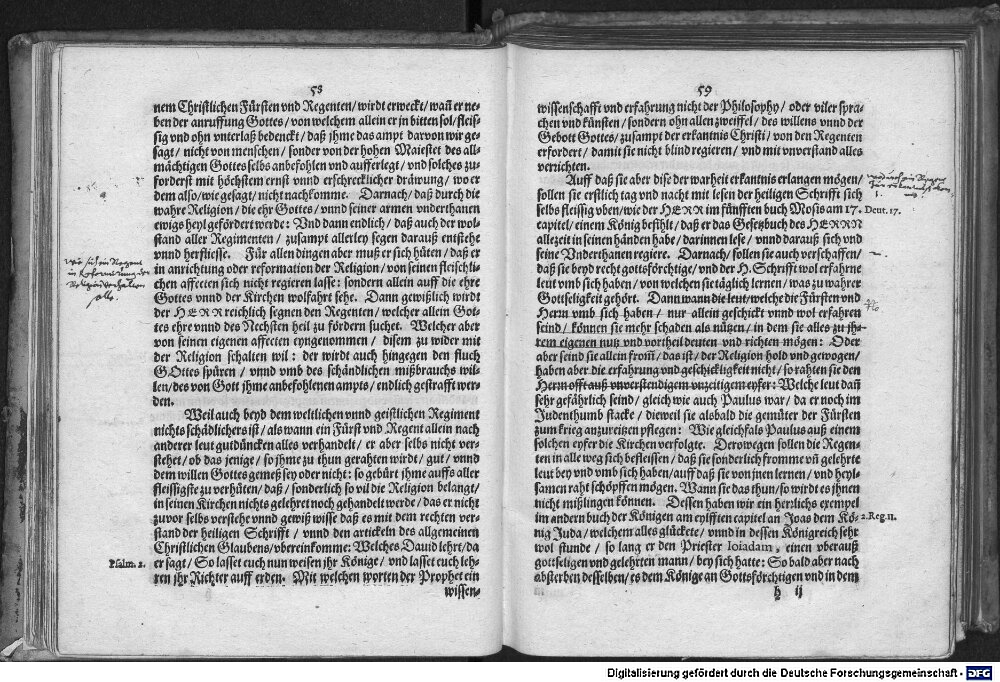 58
nem Christlichen Fürsten vnd Regenten/ wirdt erweckt/ wañ er ne-
ben der anruffung Gottes/ von welchem allein er zu bitten sol/ fleis-
sig vnd ohn vnterlaß bedenckt/ daß jhme das ampt darvon wir ge-
sagt/ nicht von menschen/ sonder von der hohen Maiestet des all-
mächtigen Gottes selbs anbefohlen vnd aufferlegt/ vnd solches zu-
forderst mit höchstem ernst vnnd erschrecklicher dräwung/ wo er
dem also/ wie gesagt/ nicht nachkomme. Darnach/ daß durch die
wahre Religion/ die ehr Gottes/ vnnd seiner armen vnderthanen
ewigs heyl gefördert werde: Vnd dann endlich/ daß auch der wol-
stand aller Regimenten/ zusampt allerley segen darauß entstehe
vnnd herfliesse. Für allen dingen aber muß er sich hüten/ daß er
in anrichtung oder reformation der Religion/ von seinen fleischli-
chen affecten sich nicht regieren lasse: sondern allein auff die ehre
Gottes vnnd der Kirchen wolfahrt sehe. Dann gewißlich wirdt
der HERR reichlich segnen den Regenten/ welcher allein Got-
tes ehre vnnd des Nechsten heil zu fördern suchet. Welcher aber
von seinen eigenen affecten eyngenommen/ disem zu wider mit
der Religion schalten wil: der wirdt auch hingegen den fluch
GOttes spüren/ vnnd vmb des schändlichen mißbrauchs wil-
len/ des von Gott jhme anbefohlenen ampts/ endlich gestrafft wer-
den.
Weil auch beyd dem weltlichen vnnd geistlichen Regiment
nichts schädlichers ist/ als wann ein Fürst vnd Regent allein nach
anderer leut gutdüncken alles verhandelt/ er aber selbs nicht ver-
stehet/ ob das jenigt/ so jhme zu thun gerahten wirdt/ gut/ vnnd
dem willen Gottes gemeß sey oder nicht: so gebürt jhme auffs aller
fleissigste zu verhüten/ daß/ sonderlich so vil die Religion belangt/
in seinen Kirchen nichts gelehret noch gehandelt werde/ das er nicht
zuvor selbs verstehe vnnd gewiß wisse daß es mit dem rechten ver-
stand der heiligen Schrifft/ vnnd den artickeln des allgemeinen
Christlichen Glaubens/ vbereinkomme: Welches Dauid lehrt/ da
Psalm. 2.
er sagt/ So lasset euch nun weisen jhr Könige/ vnd lasset euch leh-
ren jhr Richter auff erden. Mit welchen worten der Prophet ein
wissen-
59
wissenschafft vnd erfahrung nicht der Philosophy/ oder viler spra-
chen vnd künsten/ sondern ohn allen zweiffel/ des willens vnnd der
Gebott Gottes/ zusampt der erkantnis Christi/ von den Regenten
erfordert/ damit sie nicht blind regieren/ vnd mit vnverstand alles
verrichten.
Auff daß sie aber dise der warheit erkantnis erlangen mögen/
sollen sie erstlich tag vnd nacht mit lesen der heiligen Schrifft sich
selbs fleissig vben/ wie der HERR im fünfften buch Mosis am 17.
Deut. 17.
capitel/ einem König befihlt/ daß er das Gesetzbuch des HERRN
allezeit in seinen händen habe/ darinnen lese/ vnnd darauß sich vnd
seine Vnderthanen regiere. Darnach/ sollen sie auch verschaffen/
daß sie beyd recht gottsförchtige/ vnd der H. Schrifft wol erfahrne
leut vmb sich haben/ von welchen sie täglich lernen/ was zu wahrer
Gottseligkeit gehört. Dann wann die leut/ welche die Fürsten vnd
Herrn vmb sich haben/ nur allein geschickt vnnd wol erfahren
seind/ können sie mehr schaden als nützen/ in dem sie alles zu jh-
rem eigenen nutz vnd vortheil deuten vnd richten mögen: Oder
aber seind sie allein from̃/ das ist/ der Religion hold vnd gewogen/
haben aber die erfahrung vnd geschickligkeit nicht/ so rahten sie den
Herrn offt auß vnverstendigem vnzeitigem eyfer: Welche leut dañ
sehr gefährlich seind/ gleich wie auch Paulus war/ da er noch im
Judenthumb stacke/ dieweil sie alsbald die gemüter der Fürsten
zum krieg anzureitzen pflegen: Wie gleichfals Paulus auß einem
solchen eyfer die Kirchen verfolgte. Derowegen sollen die Regen-
ten in alle weg sich befleissen/ daß sie sonderlich fromme vñ gelehrte
leut bey vnd vmb sich haben/ auff daß sie von jnen lernen/ vnd heyl-
samen raht schöpffen mögen. Wann sie das thun/ so wirdt es jhnen
nicht mißlingen können. Dessen haben wir ein herrlichs exempel
im andern buch der Königen am eylfften capitel an Joas dem Kö-
2. Reg. 11.
nig Juda/ welchem alles glückete/ vnnd in dessen Königreich sehr
wol stunde/ so lang er den Priester Ioiadam, einen vberauß
gottseligen vnd gelehrten mann/ bey sich hatte: So bald aber nach
absterben desselben/ es dem Könige an Gottsförchtigen vnd in dem
h ij
Digitalisierung gefördert durch die Deutsche Forschungsgemeinschaft - DFG